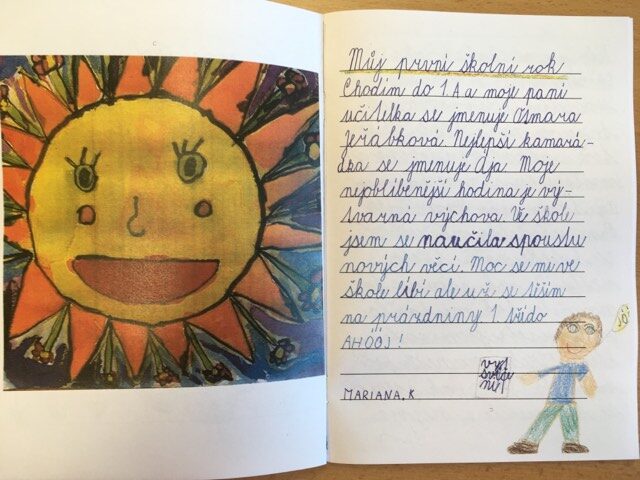 Můj první školní rok
Chodím do 1 A a moje paní
učitelka se jmenuje Osmara
Jeřábková. Nejlepší kamará-
dka se jmenuje Ája. Moje
nejoblíbenější hodina je vý-
tvarná výchova. Ve škole
jsem se naučila spoustu
nových věcí. Moc se mi ve
škole líbí ale už se těším
na prázdniny 1 třído
AHÓÓJ!
MARIANA.K